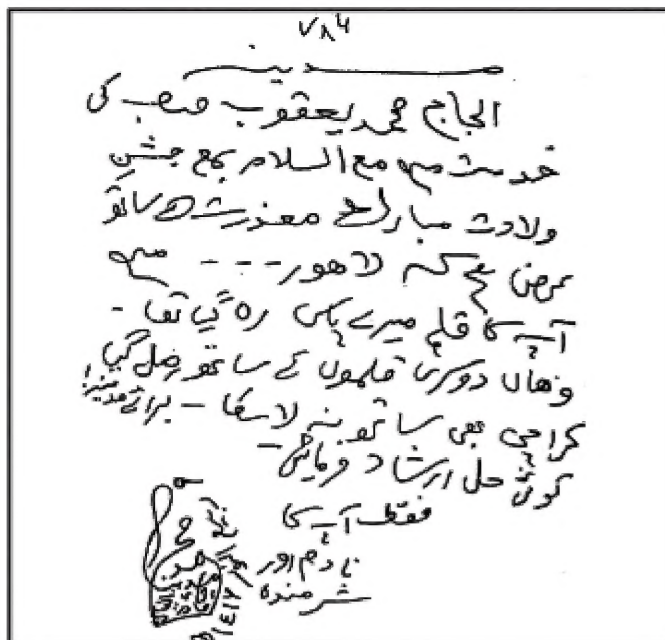 ۷۸۶
مدینہ
الحاج محمد یعقوب صاحب کی
خدمت میں مع السلام بمع جشنِ
ولادت مبارک معذرت کے ساتھ
عرض ہے کہ لاھور --- میں
آپ کا قلم میرے پاس رہ گیا تھا -
وھاں دوسری قلموں کے ساتھ مل گیا
کراچی بھی ساتھ نہ لا سکا - برائے مدینہ!
کوئی حل ارشاد فرمائیں -
فقط آپ کا
نادم اور
شرمندہ
محمد
۱٤۱۷ھ